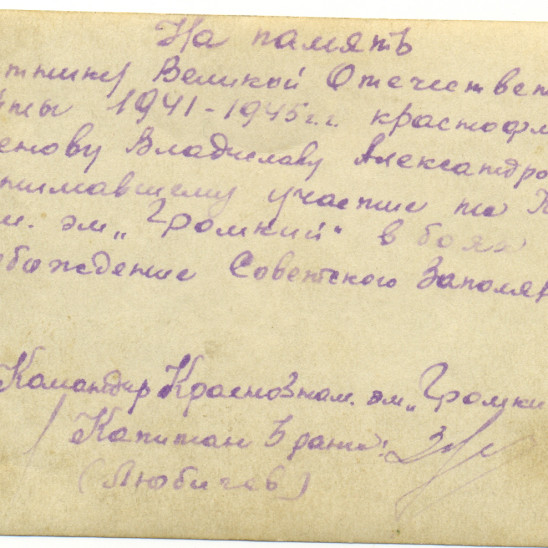 На память
тнику Великой Отечествен
йны 1941-1945г.г. краснофл
енову Владиславу Александро
нимавшему участие на К
м. эм „Громкий" в боях
бождение Советского Заполяр
Командир Краснознам. эм „Громки
Капитан 3 ранга:
(Любичев)